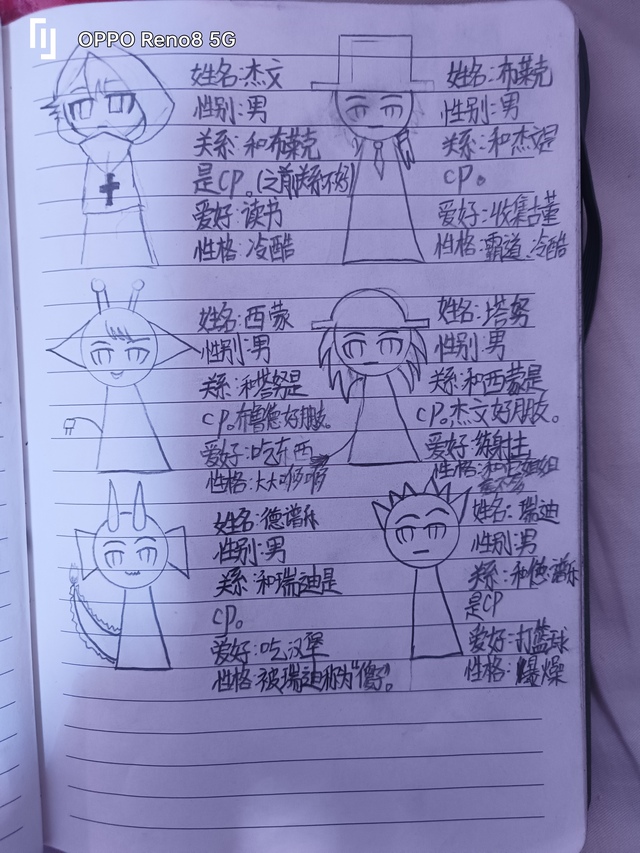 OPPO Reno8 5G
姓名:杰文
性别:男
关系:和布莱克
是CP。(之前关系不好)
爱好:读书
性格:冷酷
姓名:布莱克
性别:男
关系:和杰文是
CP。
爱好:收集古董
性格:霸道、冷酷
姓名:西蒙
性别:男
关系:和塔努是
CP。布鲁德好朋友。
爱好:吃东西
性格:大大咧咧
姓名:塔努
性别:男
关系:和西蒙是
CP。杰文好朋友。
爱好:
性格:和
姓名:德谱乐
性别:男
关系:和瑞迪是
CP。
爱好:吃汉堡
性格:被瑞迪称为“傻子”。
姓名:瑞迪
性别:男
关系:和德谱乐
是CP
爱好:打篮球
性格:爆燥